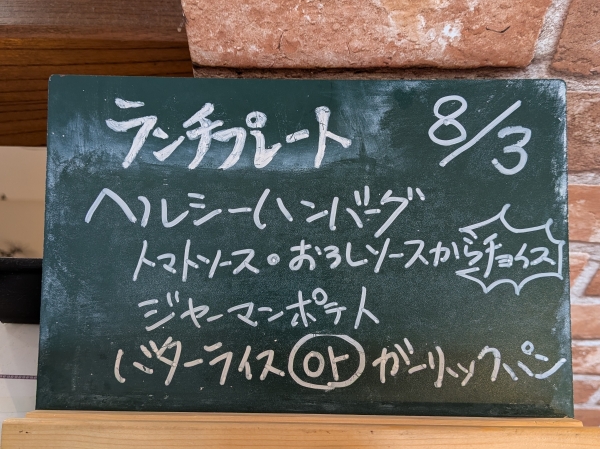 ランチプレート 8/3
ヘルシーハンバーグ
トマトソース・おろしソースからチョイス
ジャーマンポテト
バターライス or ガーリックパン